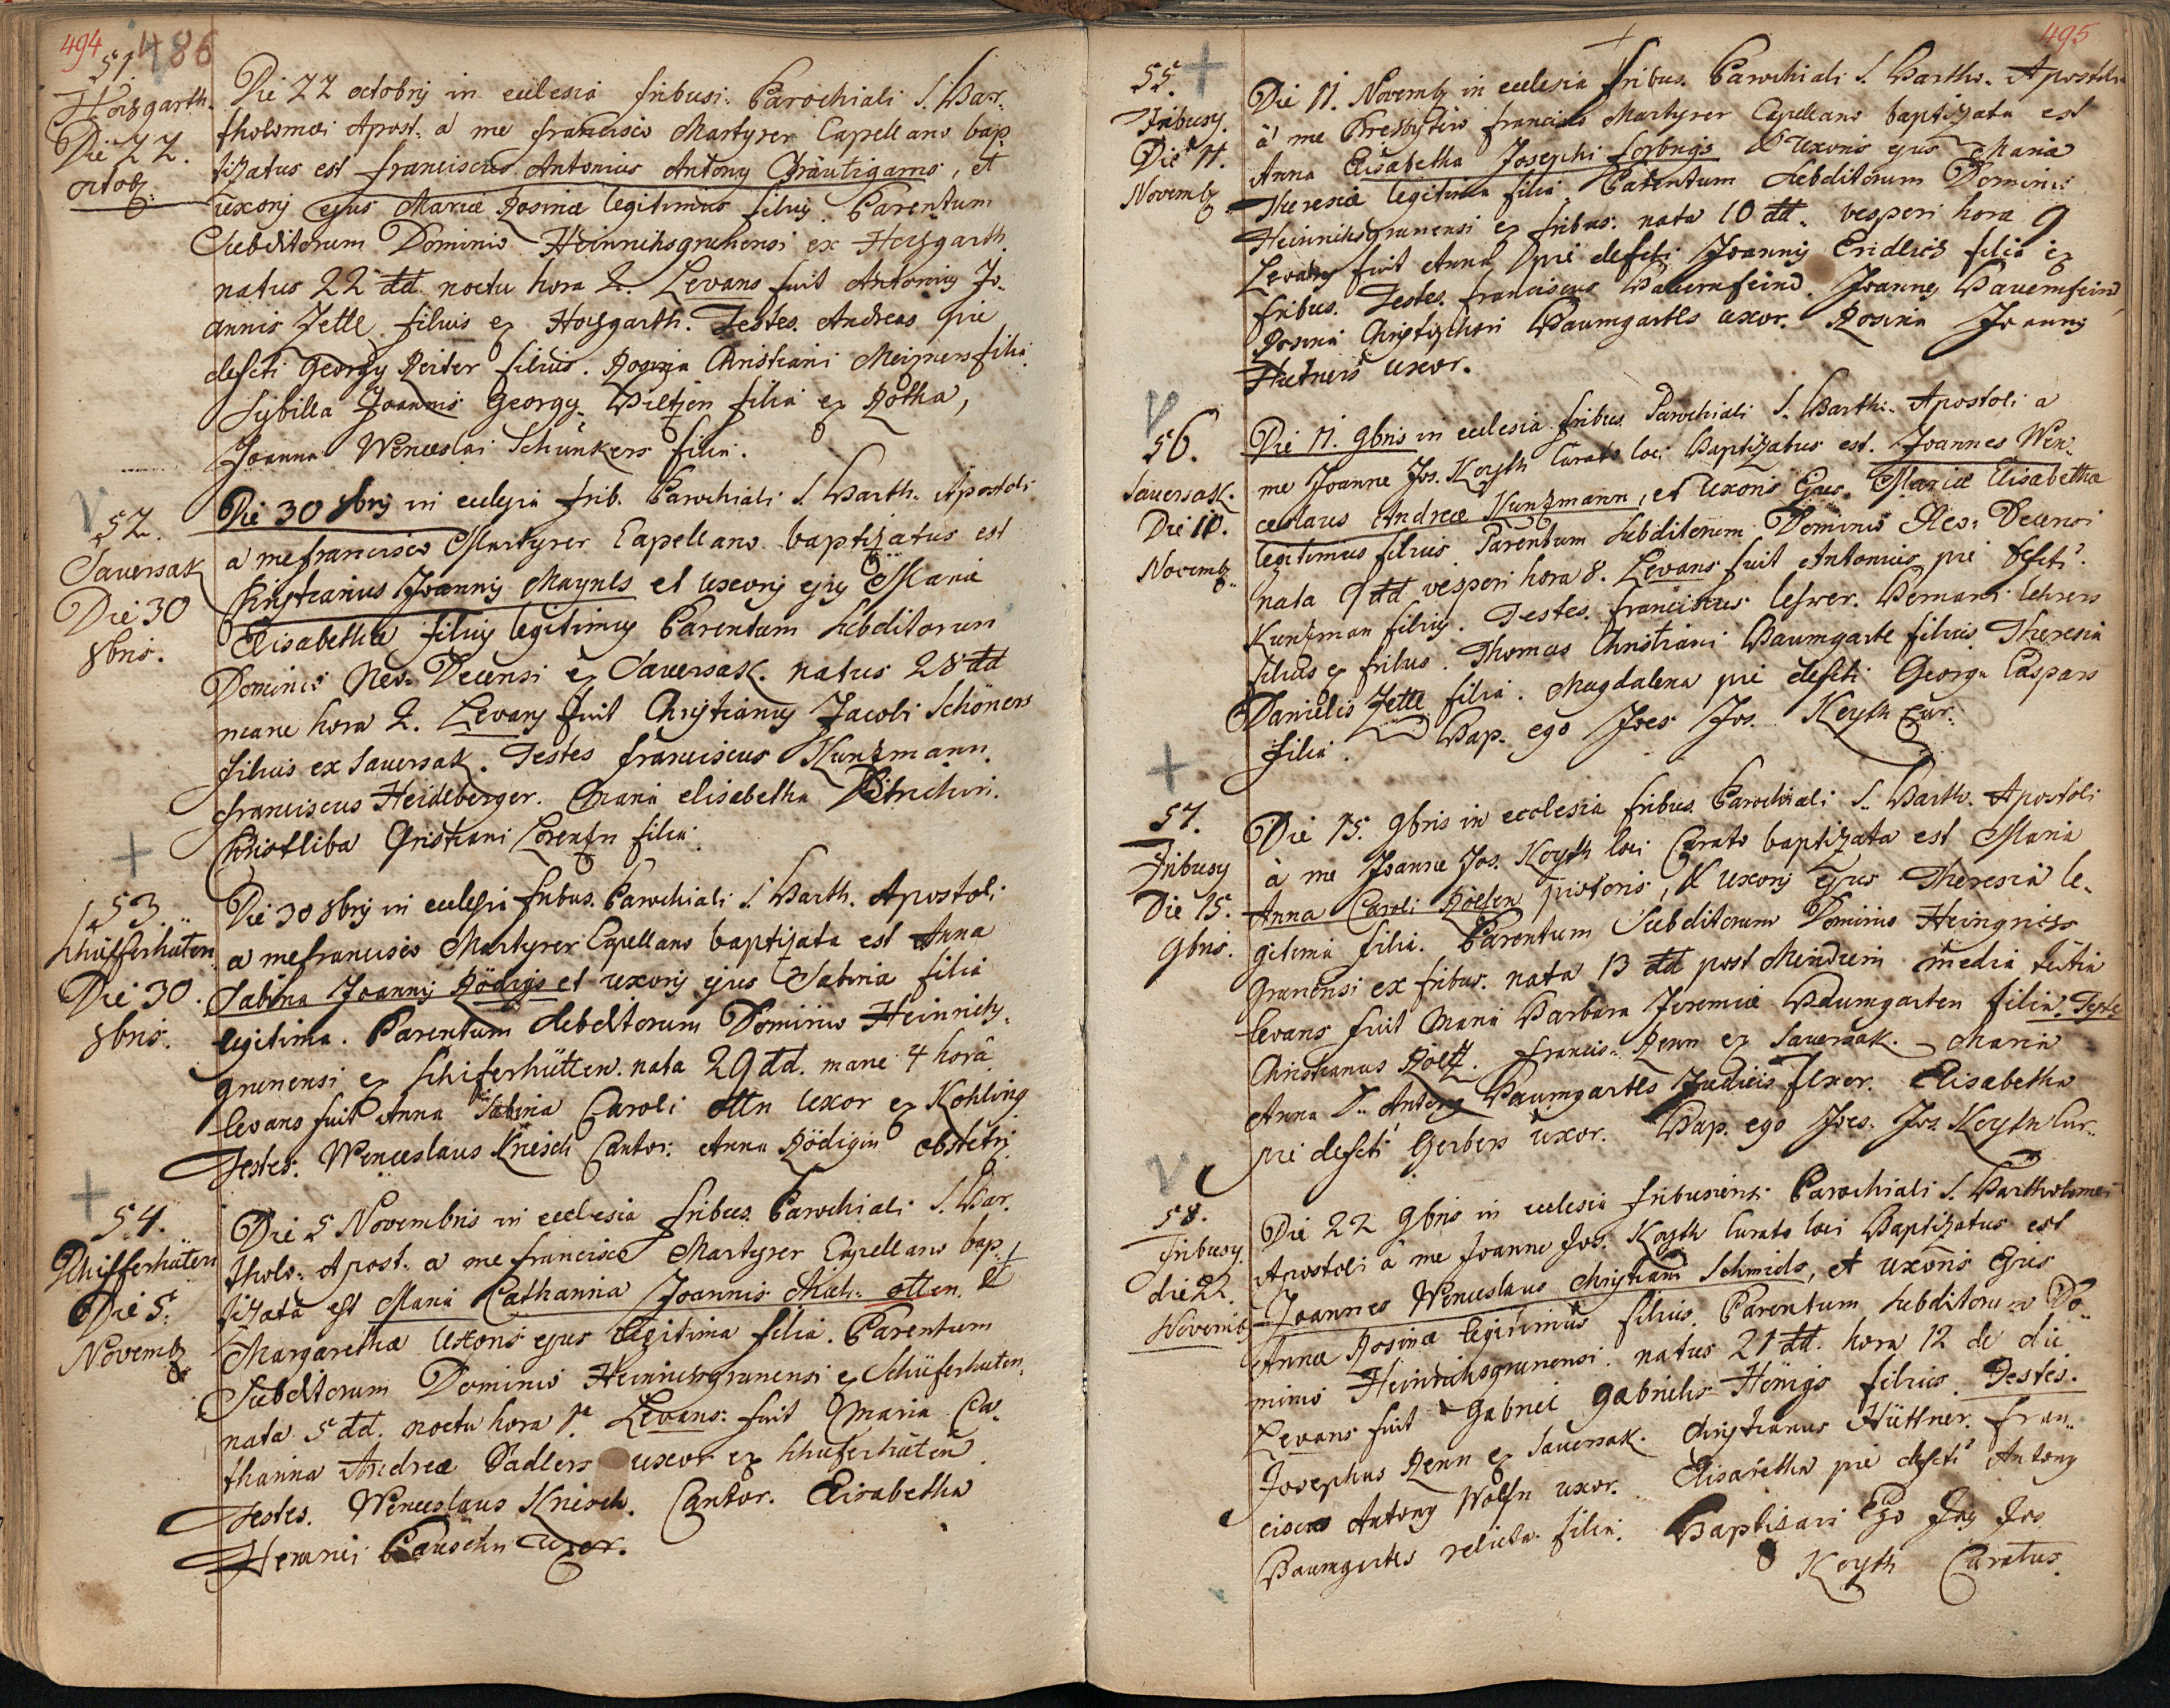 494
486
51.
Horsgarth.
Die 22.
octob:
Die 22 octobrij in ecclesia fribusi: Parochiali S. Bar-
tholomæi Apost: a me francisco Martyrer Capellano bap-
tizatus est franciscus Antonius Antony Bräutigams, et
uxorij ejus Mariæ Rosinæ legitimus filius. Parentum
Subditorum Dominio Heinrihsgrunensi ex Horsgarth.
natus 22 dd. noctu hora 2. Levans fuit Antonius Jo-
annis Zettl filius ex Horsgarth. Testes. Andreas pie
defcti Georgy Reiter filius. Rosina Christiani Meixners filia
Sybilla Joannis Georgy filia ex Rotha,
Joanna Wenceslai Schünkers filia.
52.
Sauersak
Die 30
8bris.
Die 30 8brij in ecclesia frib. Parochiali S. Barth. Apostoli
a me francisco Martyrer Capellano baptizatus est
Christianus Joannij Maynls et uxorij ejus Maria
Elisabethæ filius legitimus Parentum Subditorum
Dominio Neo-Decensi ex Sauersak. natus 28 dd
mane hora 2. Levans fuit Christianus Jacobi Schöners
filius ex Sauersak. Testes franciscus Kunzmann.
franciscus Heidlberger. Maria elisabetha
Christliba Christiani Lorentzn filia.
53.
Schüfferhüten
Die 30.
8bris.
Die 30 8brij in ecclesia fribus. Parochiali S. Barth. Apostoli
a me francisco Martyrer Capellano baptizata est Anna
Sabina Joannij Rödigs et uxorij ejus Sabina filia
legitima. Parentum subditorum Dominio Heinrichs-
grunensi ex Schiferhütten. nata 29 dd. mane 4 hora
levans fuit Anna Sabina Caroli ottn uxor ex Kohling
Testes. Wenceslaus Kneisch Cantor: Anna Rödigin obstetrj
54.
Schifferhüten
Die 5.
Novemb
Die 5 Novembris in ecclesia fribus. Parochiali S. Bar-
tholo: Apost: a me francisco Martyrer Capellano bap-
tizata est Maria Catharina Joannis Mich: otten. &
Margaretha Uxoris ejus legitima filia. Parentum
Subditorum Dominio Heinrichsgrunensi ex Schüferhuten.
nata 5 dd. noctu hora 1ª. Levans: fuit Maria Ca-
tharina Andreæ Sadlers uxor ex Schüferhüten.
Testes. Wenceslaus Knisch. Cantor. Elisabetha
Pauschn uxor.
495
55.
Fribusy.
Die 11.
Novemb
Die 11. Novemb in ecclesia fribus. Parochiali S. Bartho. Apostoli
à me Presbytero francisco Martyrer Capellano baptizata est
Anna Elisabetha Josephi & uxoris ejus Maria
Theresiæ legitima filia. Parentum Subditorum Dominio
Heinrihsgrunensi ex fribus: nata 10 dd. vesperi hora 9
Levans fuit Anna pie defcti Joannij filia ex
fribus. Testes. franciscus Bauernfeind. Joannes Bauernfeind,
Rosina Baumgartls uxor. Rosina Joannij
Hutners uxor.
56.
Sauersak.
Die 10.
Novemb
Die 11. 9bris in ecclesia fribus. Parochiali S. Barth: Apostoli a
me Joanne Jos. Keyth Curato loci Baptizatus est. Joannes Wen-
ceslaus Andreæ Kunzmann, et uxoris Ejus. Mariæ Elisabetha
legitimus filius. Parentum Subditorum Dominio Neo: Decensi
nata 9 dd vesperi hora 8. Levans fuit Antonius pie defcti
Kunzman filius. Testes. franciscus
filius ex fribus. Thomas Christiani Baumgartl filius. Theresia
Danielis Zettl filia. Magdalena pie defcti Georgy Caspars
filia. Bap. ego Joes Jos. Keyth Cur:
57.
Fribusy
Die 15.
9bris.
Die 15. 9bris in ecclesia fribus. Parochiali S. Barth. Apostoli
à me Joanne Jos. Keyth loci Curato baptizata est Maria
Anna Caroli Rölzn pistoris, & uxorij ejus Theresia le-
gitima filia. Parentum Subditorum Dominio
Grunensi ex fribus. nata 13 dd post Meridiem media tertia
levans fuit Maria Barbara Jeremiæ Baumgarten filia. Testes
Christianus Röltz. francis: Renn ex Sauersak. Maria
Anna D: Antony Baumgartls Judicis Uxor. Elisabetha
pie defcti Gerbers uxor. Bap. ego Joes. Jos. Keyth Cur.
58.
Fribusy.
die 22.
Novemb
Die 22 9bris in ecclesia fribusiensi Parochiali S. Bartholomei
Apostoli à me Joanne Jos. Keyth Curato loci Baptizatus est
Joannes Wenceslaus Christiani Schmids, et uxoris Ejus
Anna Rosinæ legitimus filius. Parentum Subditorum Do-
minio Heinrichsgrunensi. natus 21 dd. hora 12 de die.
Levans fuit Gabriel Gabrielis Hönigs filius. Testes.
Josephus Renn ex Sauersak. Christianus Hüttner. fran-
cisca Antony Wolfn uxor. Elisabetha pie defcti Antony
Baumgartls relicta filia. Baptizavi Ego Joes Jos
Keyth Curatus.